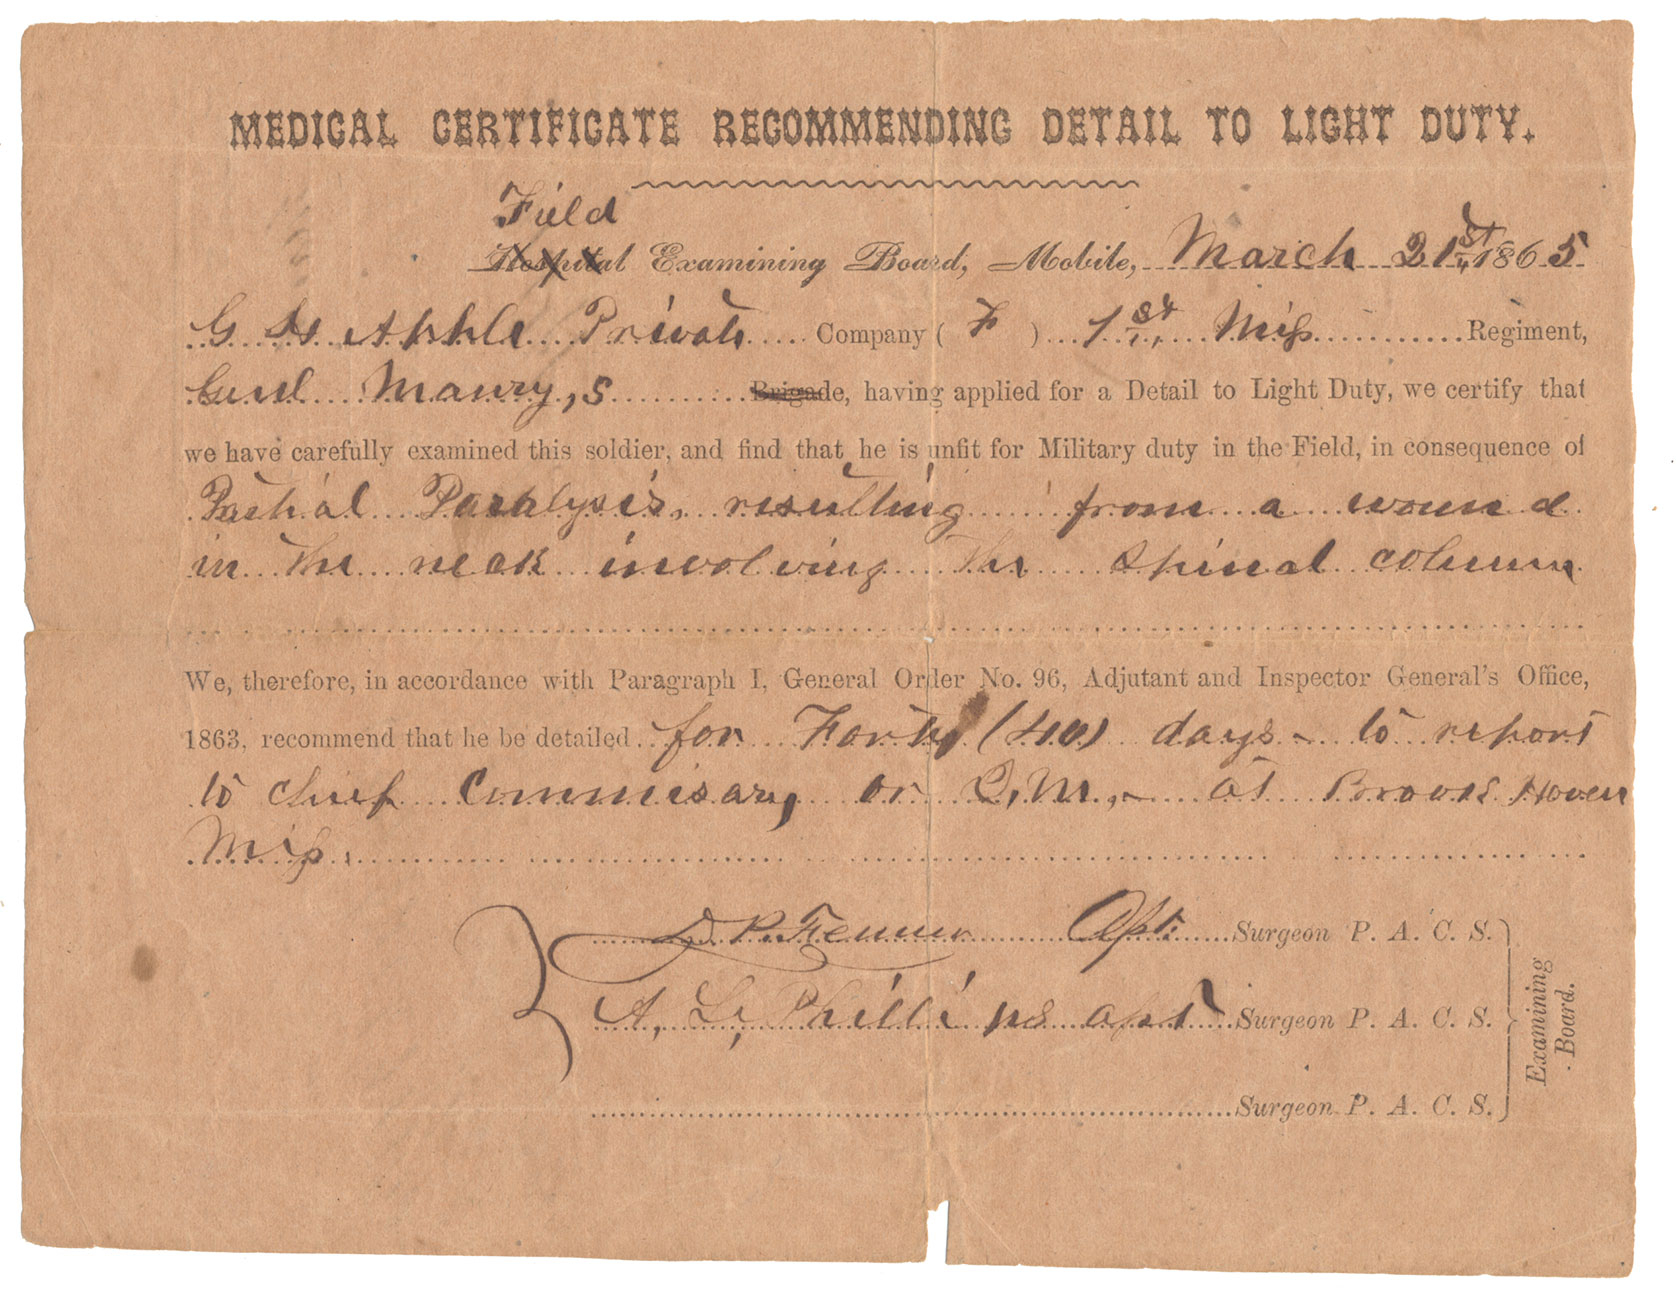 MEDICAL CERTIFICATE RECOMMENDING DETAIL TO LIGHT DUTY.
Field
Hospital Examining Board, Mobile, March 21st 1865
G H Apple Private Company ( F ) 1st, Miss Regiment,
Genl Maury,s Brigade, having applied for a Detail to Light Duty, we certify that
we have carefully examined this soldier, and find that he is unfit for Military duty in the Field, in consequence of
Partial Paralysis, resulting from a wound
in the neck involving the spinal column
We, therefore, in accordance with Paragraph I, General Order No. 96, Adjutant and Inspector General's Office,
1863, recommend that he be detailed for Forty (40) days - to report
to chief Commissary or Q.M., - at Brook Haven
Miss.
Fenner Surgeon P. A. C. S.
A. L. Phillips Surgeon P. A. C. S.
Surgeon P. A. C. S.
Examining
Board.